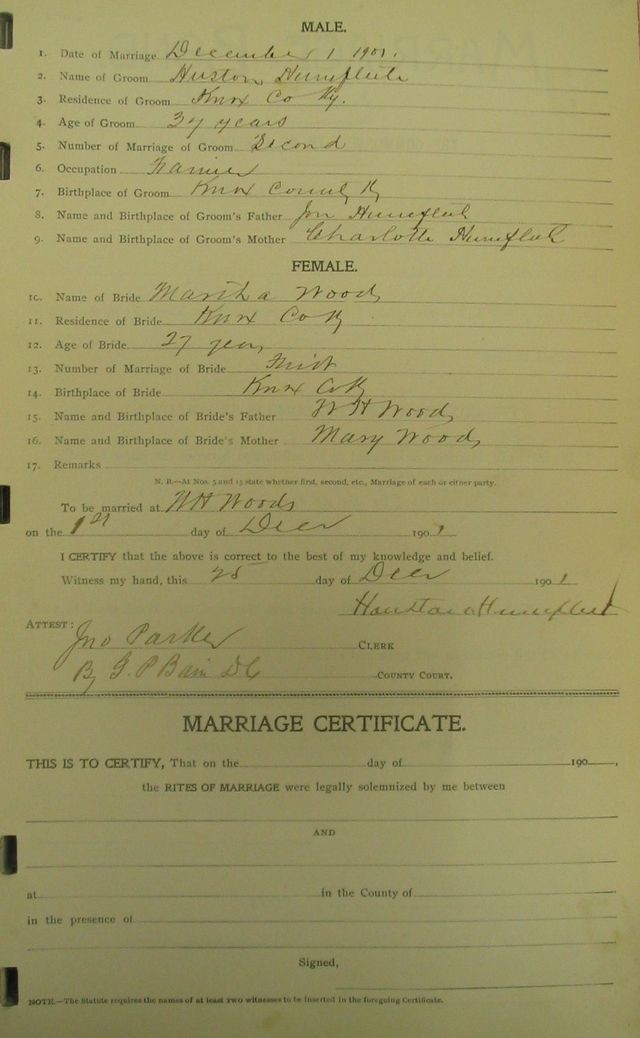 MALE.
1. Date of Marriage December 1 1901.
2. Name of Groom Huston Humfleet
3. Residence of Groom Knox Co Ky.
4. Age of Groom 37 years
5. Number of Marriage of Groom Second
6. Occupation Farmer
7. Birthplace of Groom Knox County Ky
8. Name and Birthplace of Groom's Father Jon Humfleet
9. Name and Birthplace of Groom's Mother Charlotte Humfleet
FEMALE.
10. Name of Bride Martha Woods
11. Residence of Bride Knox Co Ky
12. Age of Bride 27 years
13. Number of Marriage of Bride First
14. Birthplace of Bride Knox Co Ky
15. Name and Birthplace of Bride's Father W H Woods
16. Name and Birthplace of Bride's Mother Mary Woods
17. Remarks
N. B.—At Nos. 5 and 13 state whether first, second, etc., Marriage of each or either party.
To be married at W H Woods
on the 1st day of Decr 1901
I CERTIFY that the above is correct to the best of my knowledge and belief.
Witness my hand, this 25 day of Decr 1901
Houston Humfleet
ATTEST: Jno Parker CLERK
By G. P Bain D C COUNTY COURT.
MARRIAGE CERTIFICATE.
THIS IS TO CERTIFY, That on the day of 190 ,
the RITES OF MARRIAGE were legally solemnized by me between
AND
at in the County of
in the presence of
Signed,
NOTE.—The Statute requires the names of at least two witnesses to be inserted in the foregoing Certificate.